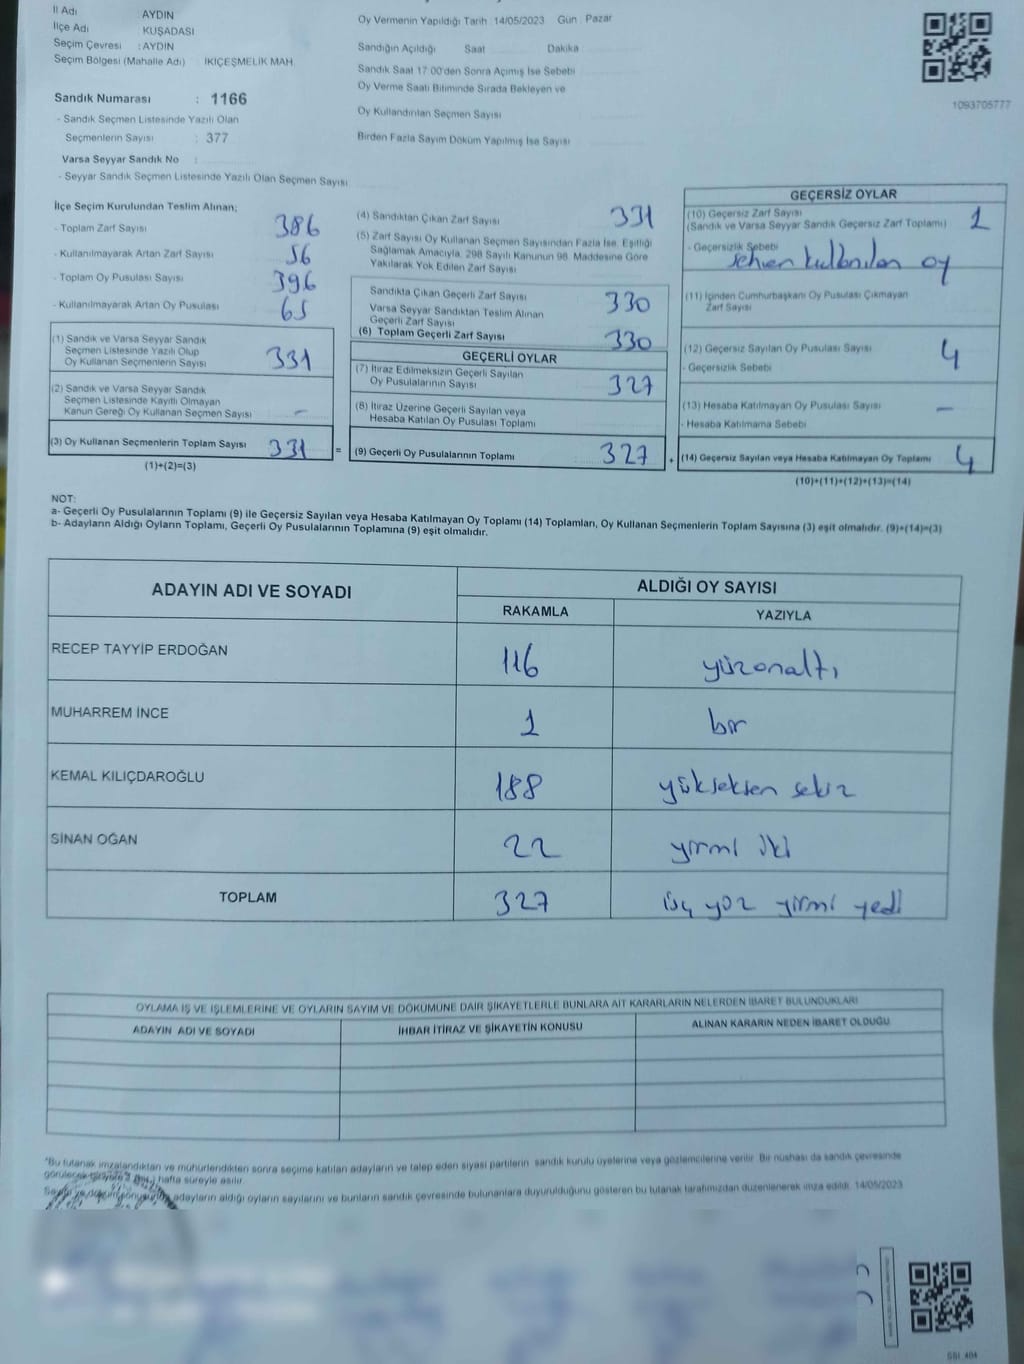 İl Adı AYDIN
İlçe Adı KUŞADASI
Seçim Çevresi : AYDIN
Seçim Bölgesi (Mahalle Adı) : İKİÇEŞMELİK MAH.
Oy Vermenin Yapıldığı Tarih 14/05/2023 Gün Pazar
Sandığın Açıldığı Saat Dakika
Sandık Saat 17:00'den Sonra Açımış İse Sebebi
Oy Verme Saati Bitiminde Sırada Bekleyen ve
Oy Kullandırılan Seçmen Sayısı
Birden Fazla Sayım Döküm Yapılmış İse Sayısı
1093705777
Sandık Numarası : 1166
- Sandık Seçmen Listesinde Yazılı Olan
Seçmenlerin Sayısı : 377
Varsa Seyyar Sandık No :
- Seyyar Sandık Seçmen Listesinde Yazılı Olan Seçmen Sayısı
İlçe Seçim Kurulundan Teslim Alınan;
- Toplam Zarf Sayısı 386
- Kullanılmayarak Artan Zarf Sayısı 56
- Toplam Oy Pusulası Sayısı 396
- Kullanılmayarak Artan Oy Pusulası 65
(1) Sandık ve Varsa Seyyar Sandık
Seçmen Listesinde Yazılı Olup
Oy Kullanan Seçmenlerin Sayısı 331
(2) Sandık ve Varsa Seyyar Sandık
Seçmen Listesinde Kayıtlı Olmayan
Kanun Gereği Oy Kullanan Seçmen Sayısı -
(3) Oy Kullanan Seçmenlerin Toplam Sayısı 331 =
(1)+(2)=(3)
(4) Sandıktan Çıkan Zarf Sayısı 331
(5) Zarf Sayısı Oy Kullanan Seçmen Sayısından Fazla İse, Eşitliği
Sağlamak Amacıyla, 298 Sayılı Kanunun 98. Maddesine Göre
Yakılarak Yok Edilen Zarf Sayısı
Sandıkta Çıkan Geçerli Zarf Sayısı 330
Varsa Seyyar Sandıktan Teslim Alınan
Geçerli Zarf Sayısı
(6) Toplam Geçerli Zarf Sayısı 330
GEÇERLİ OYLAR
(7) İtiraz Edilmeksizin Geçerli Sayılan
Oy Pusulalarının Sayısı 327
(8) İtiraz Üzerine Geçerli Sayılan veya
Hesaba Katılan Oy Pusulaları Toplamı
(9) Geçerli Oy Pusulalarının Toplamı 327 +
GEÇERSİZ OYLAR
(10) Geçersiz Zarf Sayısı
(Sandık ve Varsa Seyyar Sandık Geçersiz Zarf Toplamı) 1
- Geçersizlik Sebebi
sehven kullanılan oy
(11) İçinden Cumhurbaşkanı Oy Pusulası Çıkmayan
Zarf Sayısı
(12) Geçersiz Sayılan Oy Pusulası Sayısı 4
- Geçersizlik Sebebi
(13) Hesaba Katılmayan Oy Pusulası Sayısı -
- Hesaba Katılmama Sebebi
(14) Geçersiz Sayılan veya Hesaba Katılmayan Oy Toplamı 4
(10)+(11)+(12)+(13)=(14)
NOT:
a- Geçerli Oy Pusulalarının Toplamı (9) ile Geçersiz Sayılan veya Hesaba Katılmayan Oy Toplamı (14) Toplamları, Oy Kullanan Seçmenlerin Toplam Sayısına (3) eşit olmalıdır. (9)+(14)=(3)
b- Adayların Aldığı Oyların Toplamı, Geçerli Oy Pusulalarının Toplamına (9) eşit olmalıdır.
ADAYIN ADI VE SOYADI ALDIĞI OY SAYISI
RAKAMLA YAZIYLA
RECEP TAYYİP ERDOĞAN 116 yüzonaltı
MUHARREM İNCE 1 bir
KEMAL KILIÇDAROĞLU 188 yükseksen sekiz
SİNAN OĞAN 22 yirmi iki
TOPLAM 327 üç yüz yirmi yedi
OYLAMA İŞ VE İŞLEMLERİNE VE OYLARIN SAYIM VE DÖKÜMÜNE DAİR ŞİKAYETLERLE BUNLARA AİT KARARLARIN NELERDEN İBARET BULUNDUKLARI
ADAYIN ADI VE SOYADI İHBAR İTİRAZ VE ŞİKAYETİN KONUSU ALINAN KARARIN NEDEN İBARET OLDUĞU
*Bu tutanak imzalandıktan ve mühürlendikten sonra seçime katılan adayların ve talep eden siyasi partilerin sandık kurulu üyelerine veya gözlemcilerine verilir. Bir nüshası da sandık çevresinde
hafta süreyle asılır.
adayların aldığı oyların sayılarını ve bunların sandık çevresinde bulunanlara duyurulduğunu gösteren bu tutanak tarafımızdan düzenlenerek imza edildi. 14/05/2023